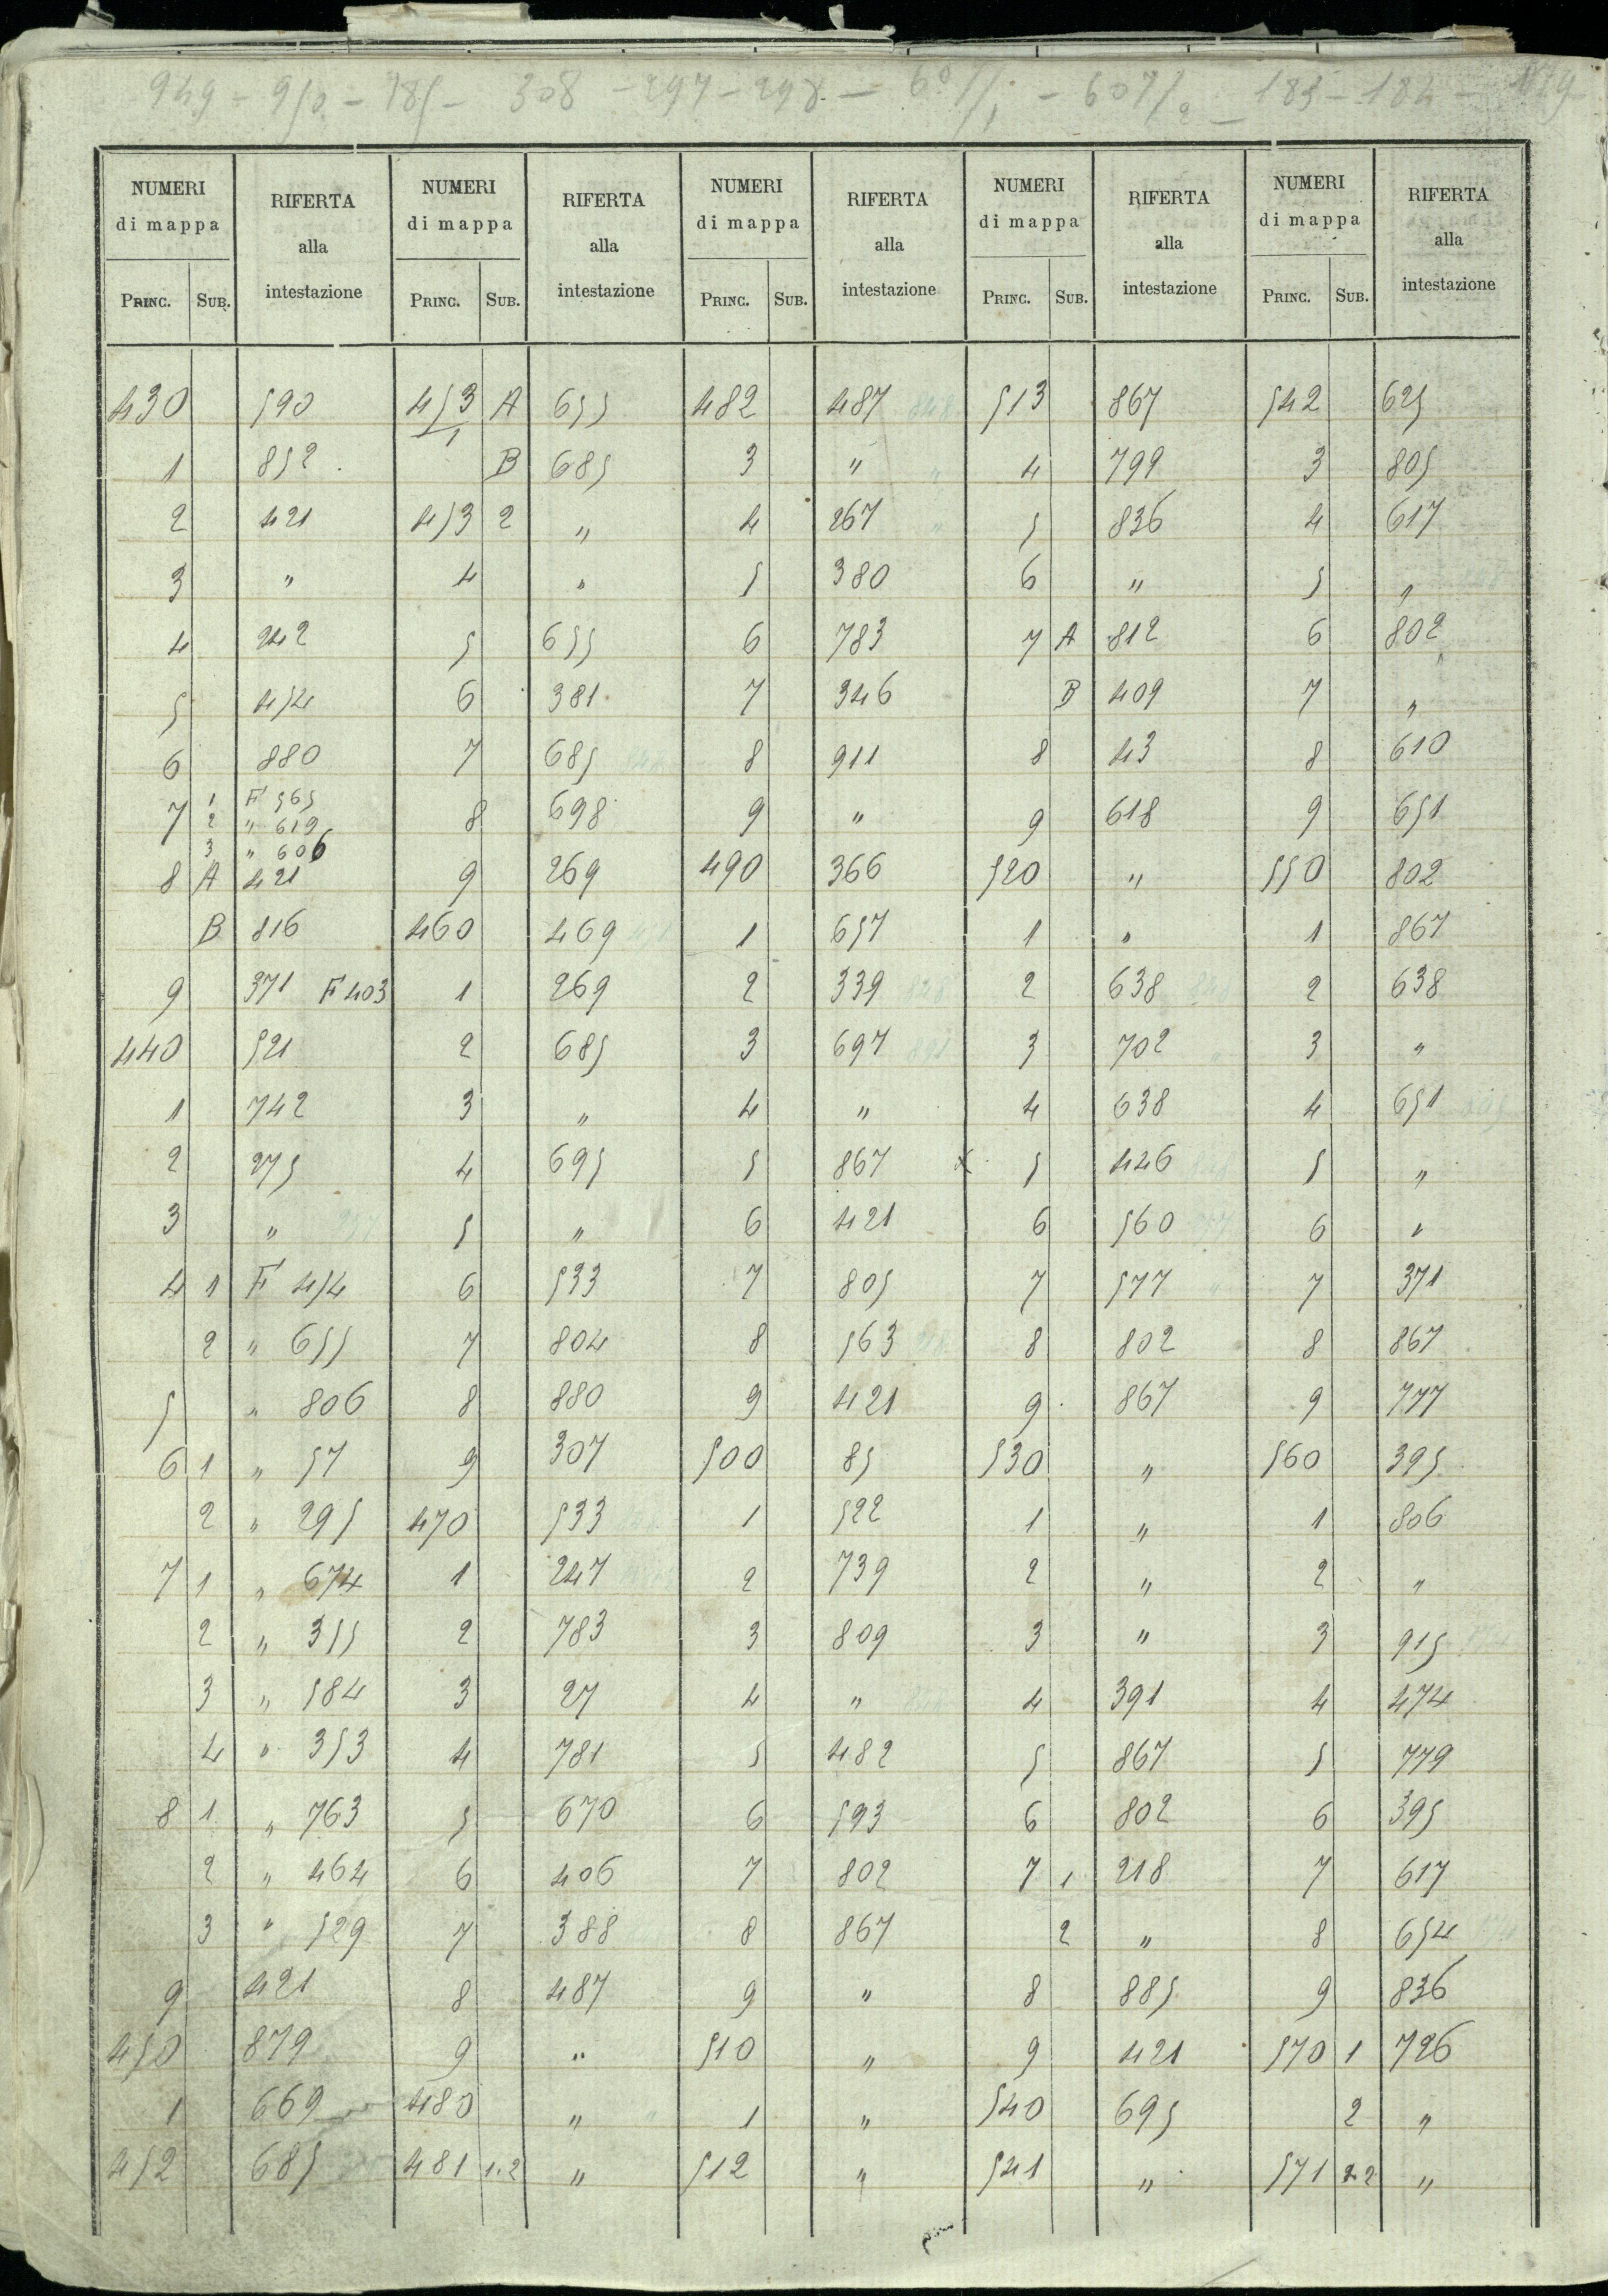 949 - 950 - 185 - 308 - 297 - 298 - 607/1 - 607/2 - 183 - 184 -
NUMERI di mappa RIFERTA alla intestazione NUMERI di mappa RIFERTA alla intestazione NUMERI di mappa RIFERTA alla intestazione NUMERI di mappa RIFERTA alla intestazione NUMERI di mappa RIFERTA alla intestazione
PRINC. SUB. PRINC. SUB. PRINC. SUB. PRINC. SUB. PRINC. SUB.
430 590 453/1 A 655 482 487 848 513 867 542 625
1 852 B 685 3 " " 4 799 3 805
2 421 453 2 " 4 267 " 5 836 4 617
3 " 4 " 5 380 6 " 5 "
4 242 5 655 6 783 7 A 812 6 802
5 454 6 381 7 346 B 409 7 "
6 880 7 685 8 911 8 43 8 610
7 1 F 565 8 698 9 " 9 618 9 651
2 " 619
3 " 606
8 A 421 9 269 490 366 520 " 550 802
B 816 460 469 1 657 1 " 1 867
9 371 F 403 1 269 2 339 848 2 638 2 638
440 521 2 685 3 697 891 3 702 3 "
1 742 3 " 4 " 4 638 4 651
2 275 4 695 5 867 x 5 446 5 "
3 " 5 " 6 421 6 560 6 "
4 1 F 454 6 533 7 805 7 577 " 7 371
2 " 655 7 804 8 563 8 802 8 867
5 " 806 8 880 9 421 9 867 9 777
6 1 " 57 9 307 500 85 530 " 560 395
2 " 295 470 533 1 522 1 " 1 806
7 1 " 674 1 247 2 739 2 " 2 "
2 " 355 2 783 3 809 3 " 3 915
3 " 584 3 27 4 " 4 391 4 474
4 " 353 4 781 5 482 5 867 5 779
8 1 " 763 5 670 6 593 6 802 6 395
2 " 464 6 406 7 802 7 1 218 7 617
3 " 529 7 388 8 867 2 " 8 654
9 421 8 487 9 " 8 885 9 836
450 879 9 " 510 " 9 421 570 1 726
1 669 480 " " 1 " 540 695 2 "
452 685 481 1.2 " 512 " 541 " 571 2 "